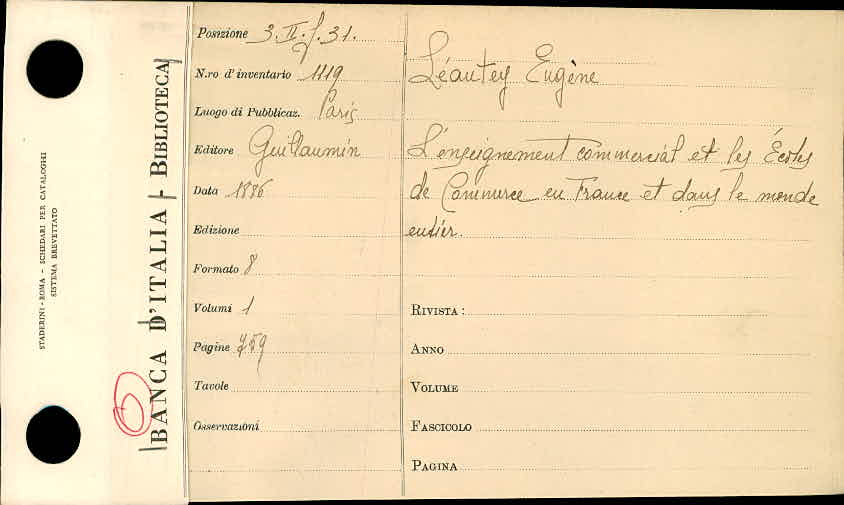 STADERINI - ROMA - SCHEDARI PER CATALOGHI
SISTEMA BREVETTATO
BANCA D'ITALIA - BIBLIOTECA
Posizione 3. II. f. 31.
N.ro d'inventario 1119
Luogo di Pubblicaz. Paris
Editore Guillaumin
Data 1886
Edizione
Formato 8
Volumi 1
Pagine 759
Tavole
Osservazioni
Léautey Eugène
L'enseignement commercial et les Écoles
de Commerce en France et dans le monde
entier.
RIVISTA :
ANNO
VOLUME
FASCICOLO
PAGINA